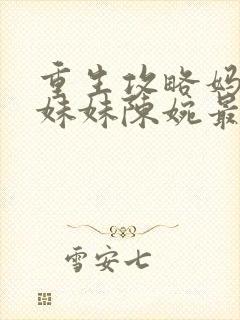 重生攻略妈
妹妹陈婉最
雪安七